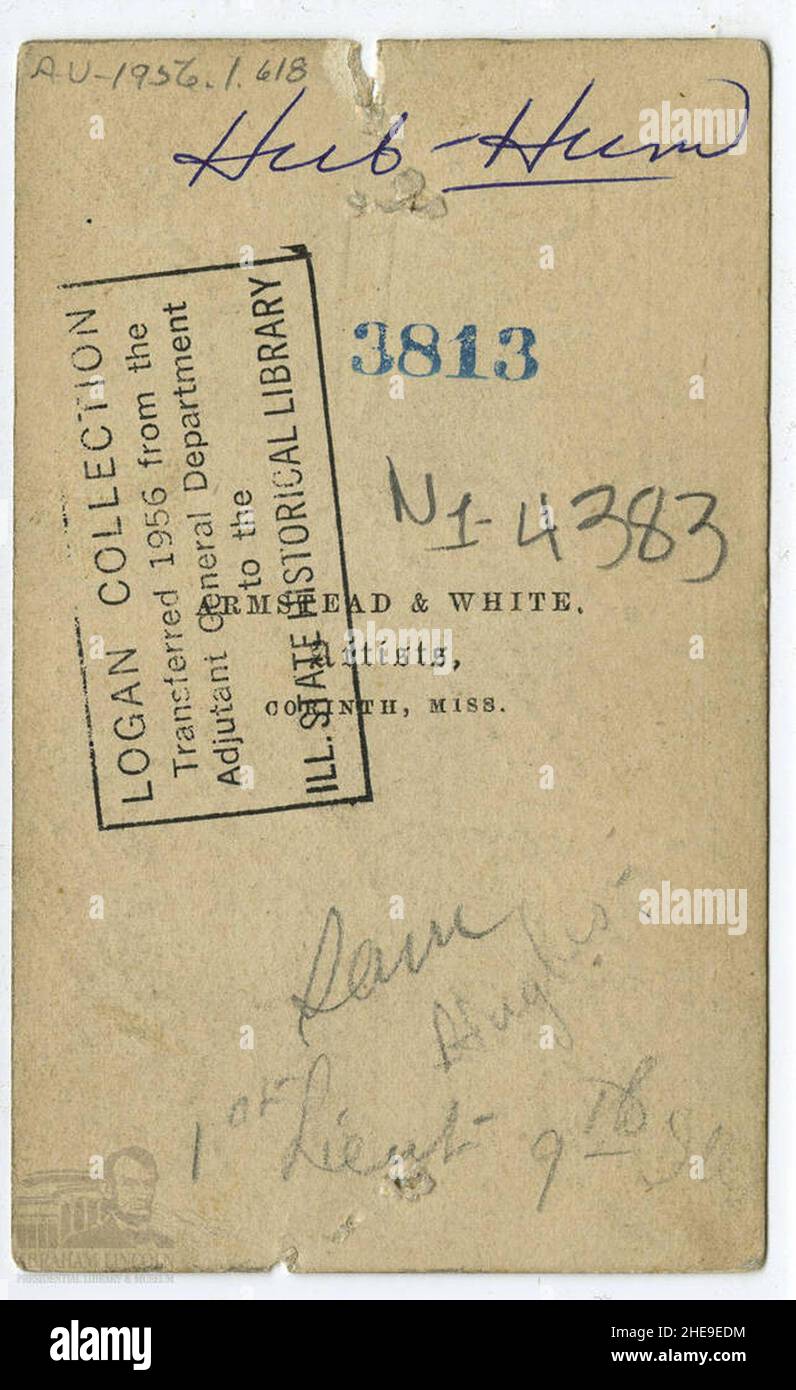 AU-1956.1.618
Hub-Hum
3813
N1-4383
LOGAN COLLECTION
Transferred 1956 from the
Adjutant General Department
to the
ILL. STATE HISTORICAL LIBRARY
ARMSTEAD & WHITE,
Artists,
CORINTH, MISS.
Sam
Hughes
1st Lieut 9th
ABRAHAM LINCOLN
PRESIDENTIAL LIBRARY & MUSEUM
alamy
alamy
a alamy
Image ID: 2HE9EDM
www.alamy.com